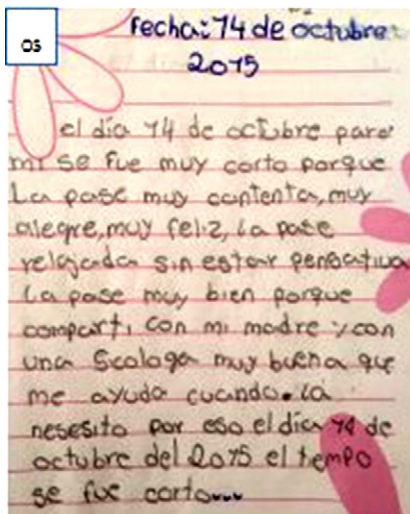 os
fecha: 14 de octubre
2015
el día 14 de octubre para
mi se fue muy corto porque
La pase muy contenta, muy
alegre, muy feliz, la pase
relajada sin estar pensativa
La pase muy bien porque
compartí con mi madre y con
una Scologa muy buena que
me ayuda cuando la
nesesito por eso el día 14 de
octubre del 2015 el tiempo
se fue corto...